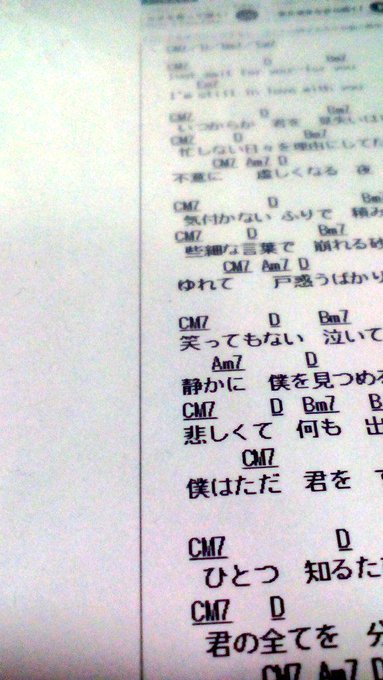 CM7 D Bm7
Just wait for you for you
I'm still in love with you
CM7 D Bm7
いつからか 君を 見失い
CM7 D Bm7
忙しない日々を理由にしてた
CM7 Am7 D
不意に 虚しくなる 夜
CM7 D Bm
気付かない ふりで 積み
CM7 D Bm7
些細な言葉で 崩れる砂
CM7 Am7 D
ゆれて 戸惑うばかり
CM7 D Bm7
笑ってもない 泣いて
Am7 D
静かに 僕を見つめる
CM7 D Bm7 B
悲しくて 何も 出
CM7
僕はただ 君を
CM7 D
ひとつ 知るた
CM7 D
君の全てを 分
CM7 Am7 D